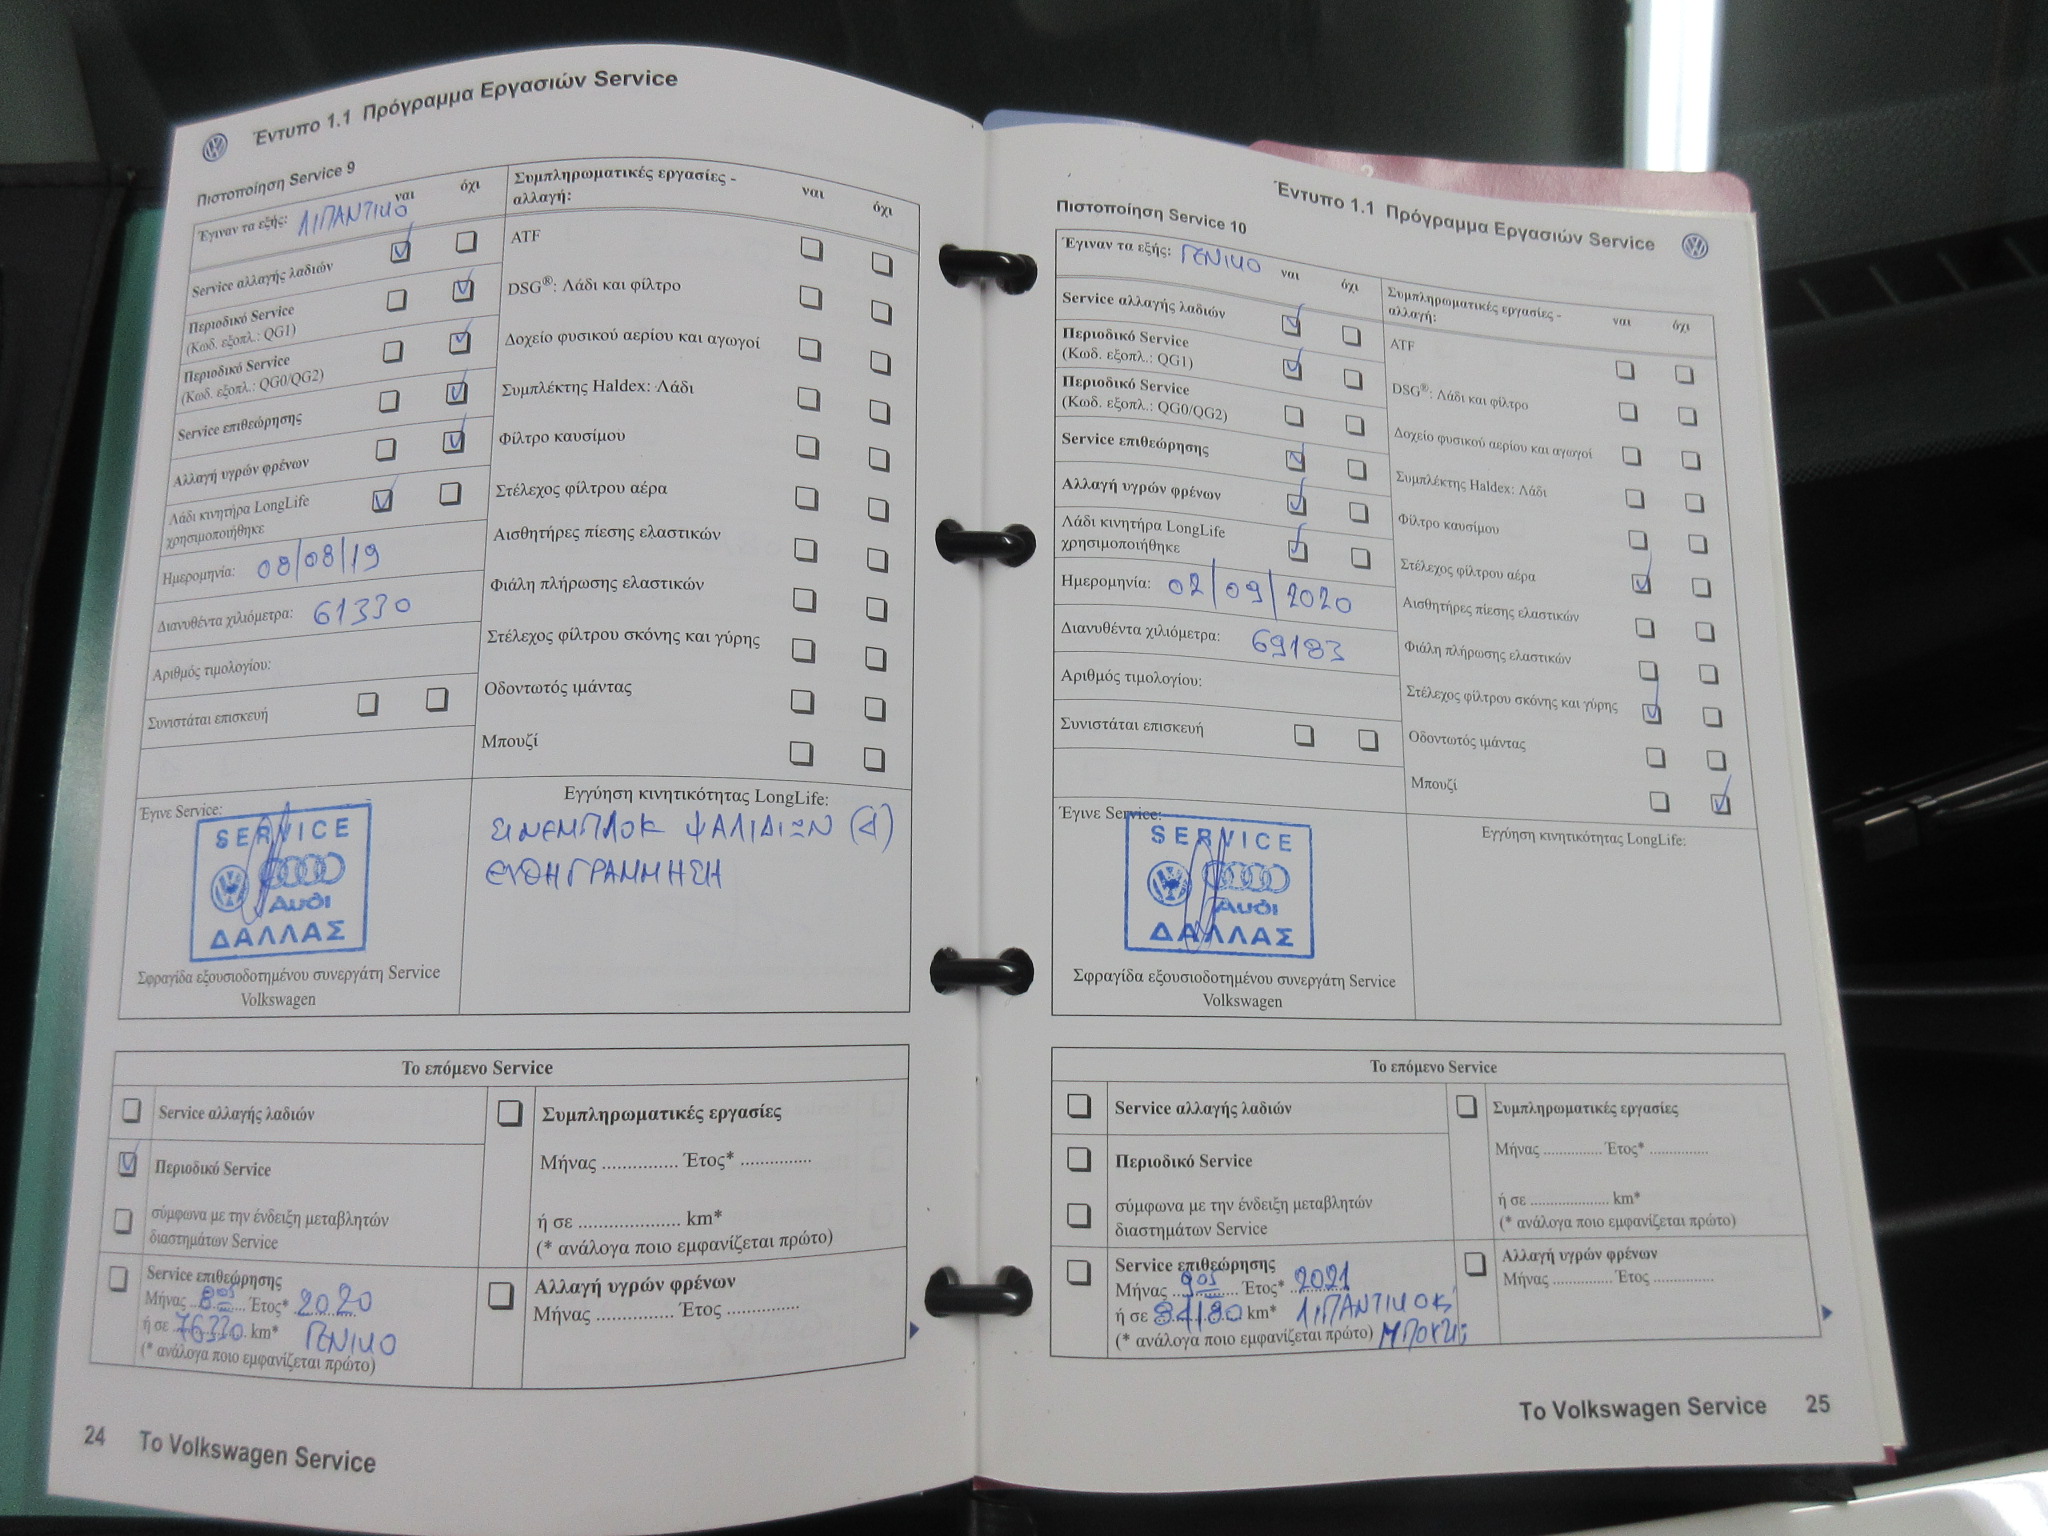 Έντυπο 1.1 Πρόγραμμα Εργασιών Service
Πιστοποίηση Service 9
Έγιναν τα εξής: ΛΙΠΑΝΤΙΚΟ ναι όχι
Service αλλαγής λαδιών
Περιοδικό Service
(Κωδ. εξοπλ.: QG1)
Περιοδικό Service
(Κωδ. εξοπλ.: QG0/QG2)
Service επιθεώρησης
Αλλαγή υγρών φρένων
Λάδι κινητήρα LongLife
χρησιμοποιήθηκε
Ημερομηνία: 08/08/19
Διανυθέντα χιλιόμετρα: 61330
Αριθμός τιμολογίου:
Συνιστάται επισκευή
Συμπληρωματικές εργασίες -
αλλαγή:
ναι όχι
ATF
DSG®: Λάδι και φίλτρο
Δοχείο φυσικού αερίου και αγωγοί
Συμπλέκτης Haldex: Λάδι
Φίλτρο καυσίμου
Στέλεχος φίλτρου αέρα
Αισθητήρες πίεσης ελαστικών
Φιάλη πλήρωσης ελαστικών
Στέλεχος φίλτρου σκόνης και γύρης
Οδοντωτός ιμάντας
Μπουζί
Έγινε Service:
SERVICE
Audi
ΔΑΛΛΑΣ
Σφραγίδα εξουσιοδοτημένου συνεργάτη Service
Volkswagen
Εγγύηση κινητικότητας LongLife:
ΣΙΝΕΜΠΛΟΚ ΨΑΛΙΔΙΩΝ
ΕΥΘΗΓΡΑΜΜΗΣΗ
Το επόμενο Service
Service αλλαγής λαδιών
Περιοδικό Service
σύμφωνα με την ένδειξη μεταβλητών
διαστημάτων Service
Service επιθεώρησης
Μήνας 8ος Έτος* 2020
ή σε 76330 km* ΓΕΝΙΚΟ
(* ανάλογα ποιο εμφανίζεται πρώτο)
Συμπληρωματικές εργασίες
Μήνας ............... Έτος* ..............
ή σε .................... km*
(* ανάλογα ποιο εμφανίζεται πρώτο)
Αλλαγή υγρών φρένων
Μήνας ............... Έτος ..............
24 Το Volkswagen Service
Έντυπο 1.1 Πρόγραμμα Εργασιών Service
Πιστοποίηση Service 10
Έγιναν τα εξής: ΓΕΝΙΚΟ ναι όχι
Service αλλαγής λαδιών
Περιοδικό Service
(Κωδ. εξοπλ.: QG1)
Περιοδικό Service
(Κωδ. εξοπλ.: QG0/QG2)
Service επιθεώρησης
Αλλαγή υγρών φρένων
Λάδι κινητήρα LongLife
χρησιμοποιήθηκε
Ημερομηνία: 02/09/2020
Διανυθέντα χιλιόμετρα: 69183
Αριθμός τιμολογίου:
Συνιστάται επισκευή
Συμπληρωματικές εργασίες -
αλλαγή:
ναι όχι
ATF
DSG®: Λάδι και φίλτρο
Δοχείο φυσικού αερίου και αγωγοί
Συμπλέκτης Haldex: Λάδι
Φίλτρο καυσίμου
Στέλεχος φίλτρου αέρα
Αισθητήρες πίεσης ελαστικών
Φιάλη πλήρωσης ελαστικών
Στέλεχος φίλτρου σκόνης και γύρης
Οδοντωτός ιμάντας
Μπουζί
Έγινε Service:
SERVICE
Audi
ΔΑΛΛΑΣ
Σφραγίδα εξουσιοδοτημένου συνεργάτη Service
Volkswagen
Εγγύηση κινητικότητας LongLife:
Το επόμενο Service
Service αλλαγής λαδιών
Περιοδικό Service
σύμφωνα με την ένδειξη μεταβλητών
διαστημάτων Service
Service επιθεώρησης
Μήνας 9ος Έτος* 2021
ή σε km*
(* ανάλογα ποιο εμφανίζεται πρώτο)
Συμπληρωματικές εργασίες
Μήνας ............... Έτος* ..............
ή σε .................... km*
(* ανάλογα ποιο εμφανίζεται πρώτο)
Αλλαγή υγρών φρένων
Μήνας ............... Έτος ..............
Το Volkswagen Service 25